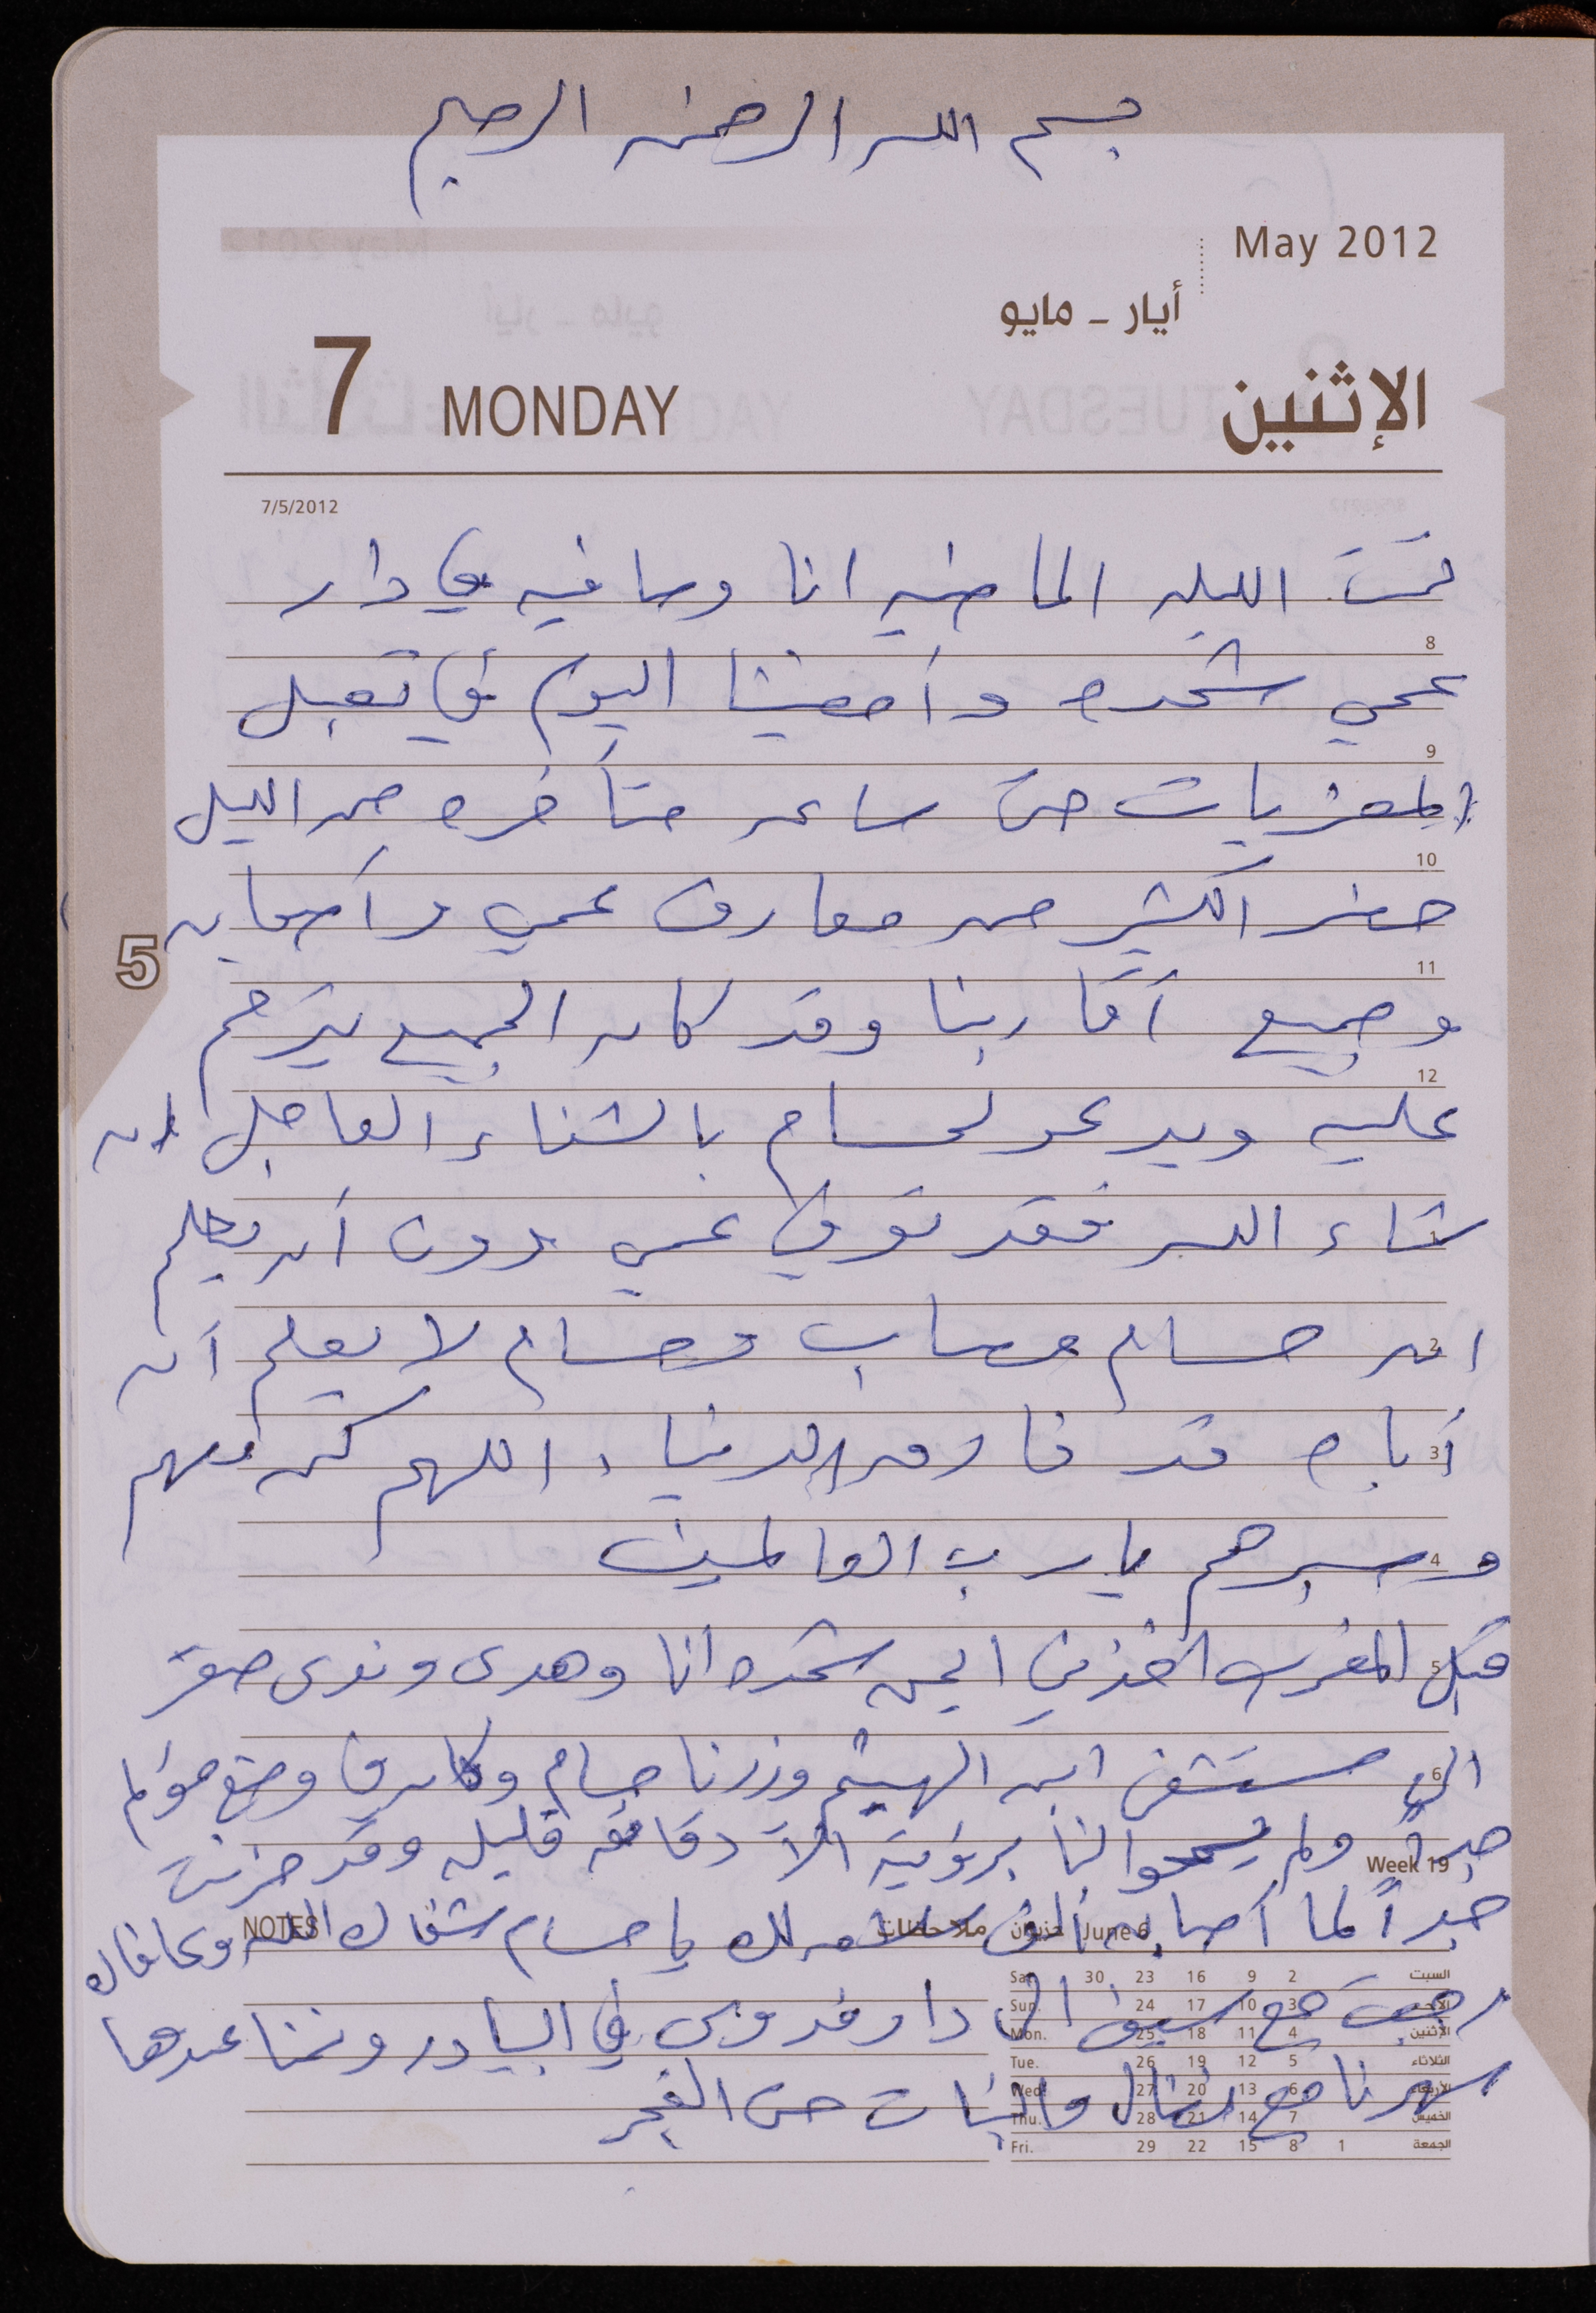 بسم الله الرحمن الرحيم
May 2012
أيار - مايو
7 MONDAY الإثنين
7/5/2012
نمت الليله الماضيه انا وصافيه في دار
8
عمي شحده وأمضينا اليوم في تقبل
9
المعزيات حتى ساعه متأخره من الليل
10
حضر الكثير من معارف عمي وأصحابه
5
11
وجميع أقاربنا وقد كان الجميع يترحم
12
عليه ويدعو لحسام بالشفاء العاجل ان
1
شاء الله فقد توفي عمي دون أن يعلم
2
ان حسام مصاب وحسام لا يعلم أن
3
أباه قد فارق الدنيا، اللهم كن معهم
4
وصبرهم يا رب العالمين
5
قبل المغرب اخذني ايمن شحده انا وهدى وندى صقر
6
الى مستشفى ابن الهيثم وزرنا حسام وكان في وضع مؤلم
جداً ولم يسمحوا لنا برؤيته الا دقائق قليله وقد حزنت
Week 19
جداً لما أصابه ألف سلامه لك يا حسام شفاك الله وعافاك
NOTES ملاحظات
June 6 حزيران
رجعت مع سيف الى دار فدوى في البيادر ونمنا عندها
سهرنا مع نضال والبنات حتى الفجر
Sat. 30 23 16 9 2 السبت
Sun. 24 17 10 3 الأحد
Mon. 25 18 11 4 الإثنين
Tue. 26 19 12 5 الثلاثاء
Wed. 27 20 13 6 الأربعاء
Thu. 28 21 14 7 الخميس
Fri. 29 22 15 8 1 الجمعة